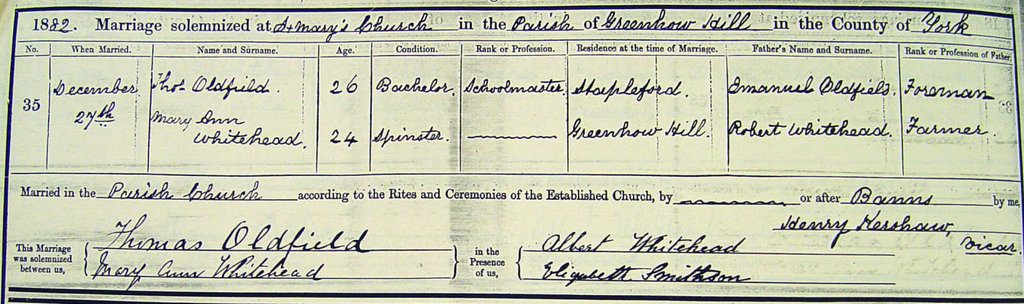 1882. Marriage solemnized at St Mary's Church in the Parish of Greenhow Hill in the County of York
No. When Married. Name and Surname. Age. Condition. Rank or Profession. Residence at the time of Marriage. Father's Name and Surname. Rank or Profession of Father.
December Thos Oldfield. 26 Bachelor. Schoolmaster. Stapleford. Emanuel Oldfield. Foreman
35
27th Mary Ann
Whitehead. 24 Spinster. Greenhow Hill. Robert Whitehead. Farmer.
Married in the Parish Church according to the Rites and Ceremonies of the Established Church, by or after Banns by me,
Henry Kershaw, Vicar.
This Marriage was solemnized between us,
Thomas Oldfield
Mary Ann Whitehead
in the Presence of us,
Albert Whitehead
Elizabeth Smithson